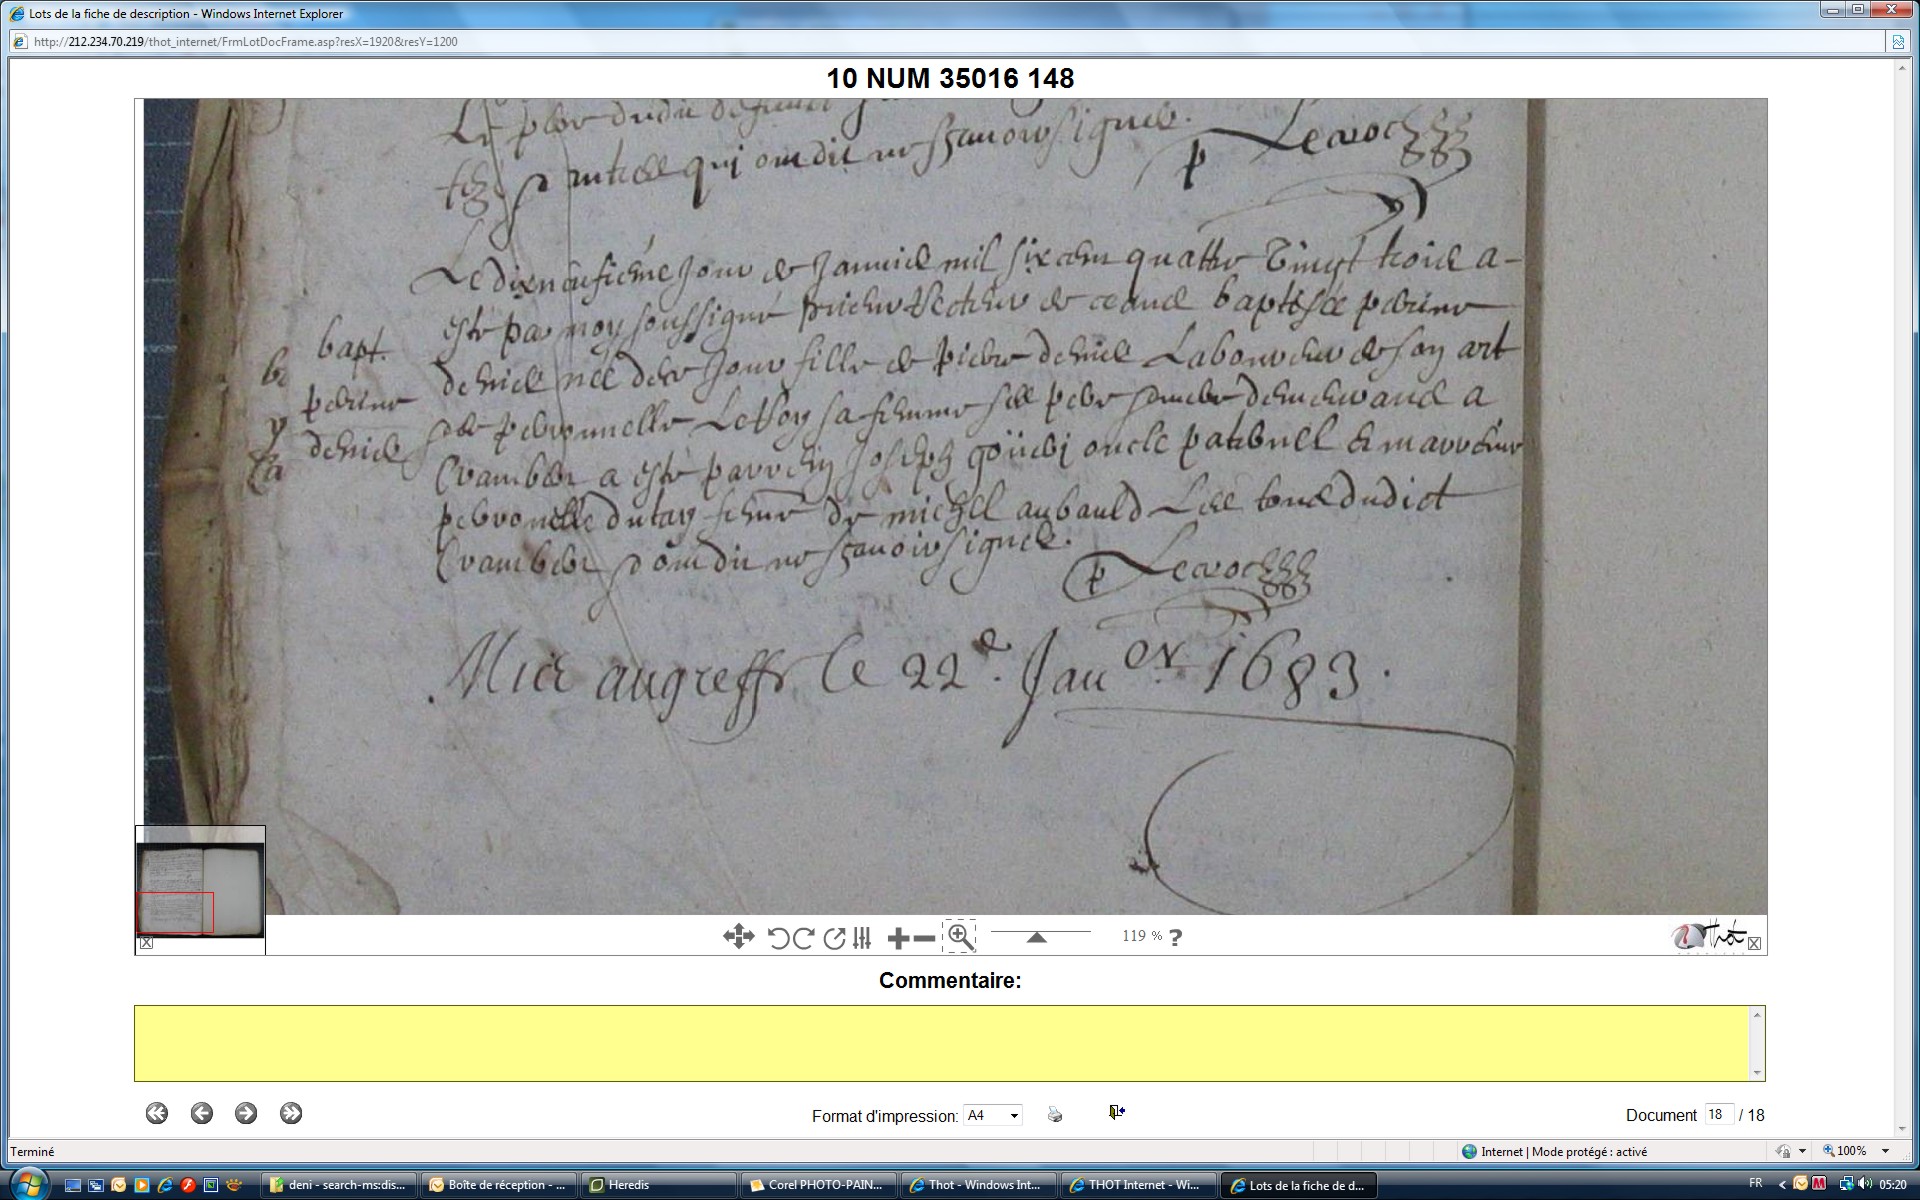 Lots de la fiche de description - Windows Internet Explorer
http://212.234.70.219/thot_internet/FrmLotDocFrame.asp?resX=1920&resY=1200
10 NUM 35016 148
qui ont dit ne sçauoir signer.
p Lecroc
Le dixneufieme Jour de Januier mil six cent quattre vingt trois a
esté par moy soussigné prieur Recteur de ceans baptisée perrine
bapt.
perrine
deniel
deniel née de ce Jour fille de pierre deniel Laboureur de son art
et de perronnelle LeRoy sa femme
a esté parrein Joseph oncle paternel & marreine
perronelle dutay femme de michel aubauld dudict
ont dit ne sçauoir signer.
p Lecroc
Mis au greffe le 22e. Janer 1683.
119 % ?
Thot
Commentaire:
Format d'impression: A4
Document 18 / 18
Terminé
Internet | Mode protégé : activé
100%
deni - search-ms:dis...
Boîte de réception - ...
Heredis
Corel PHOTO-PAIN...
Thot - Windows Int...
THOT Internet - Wi...
Lots de la fiche de d...
FR
05:20